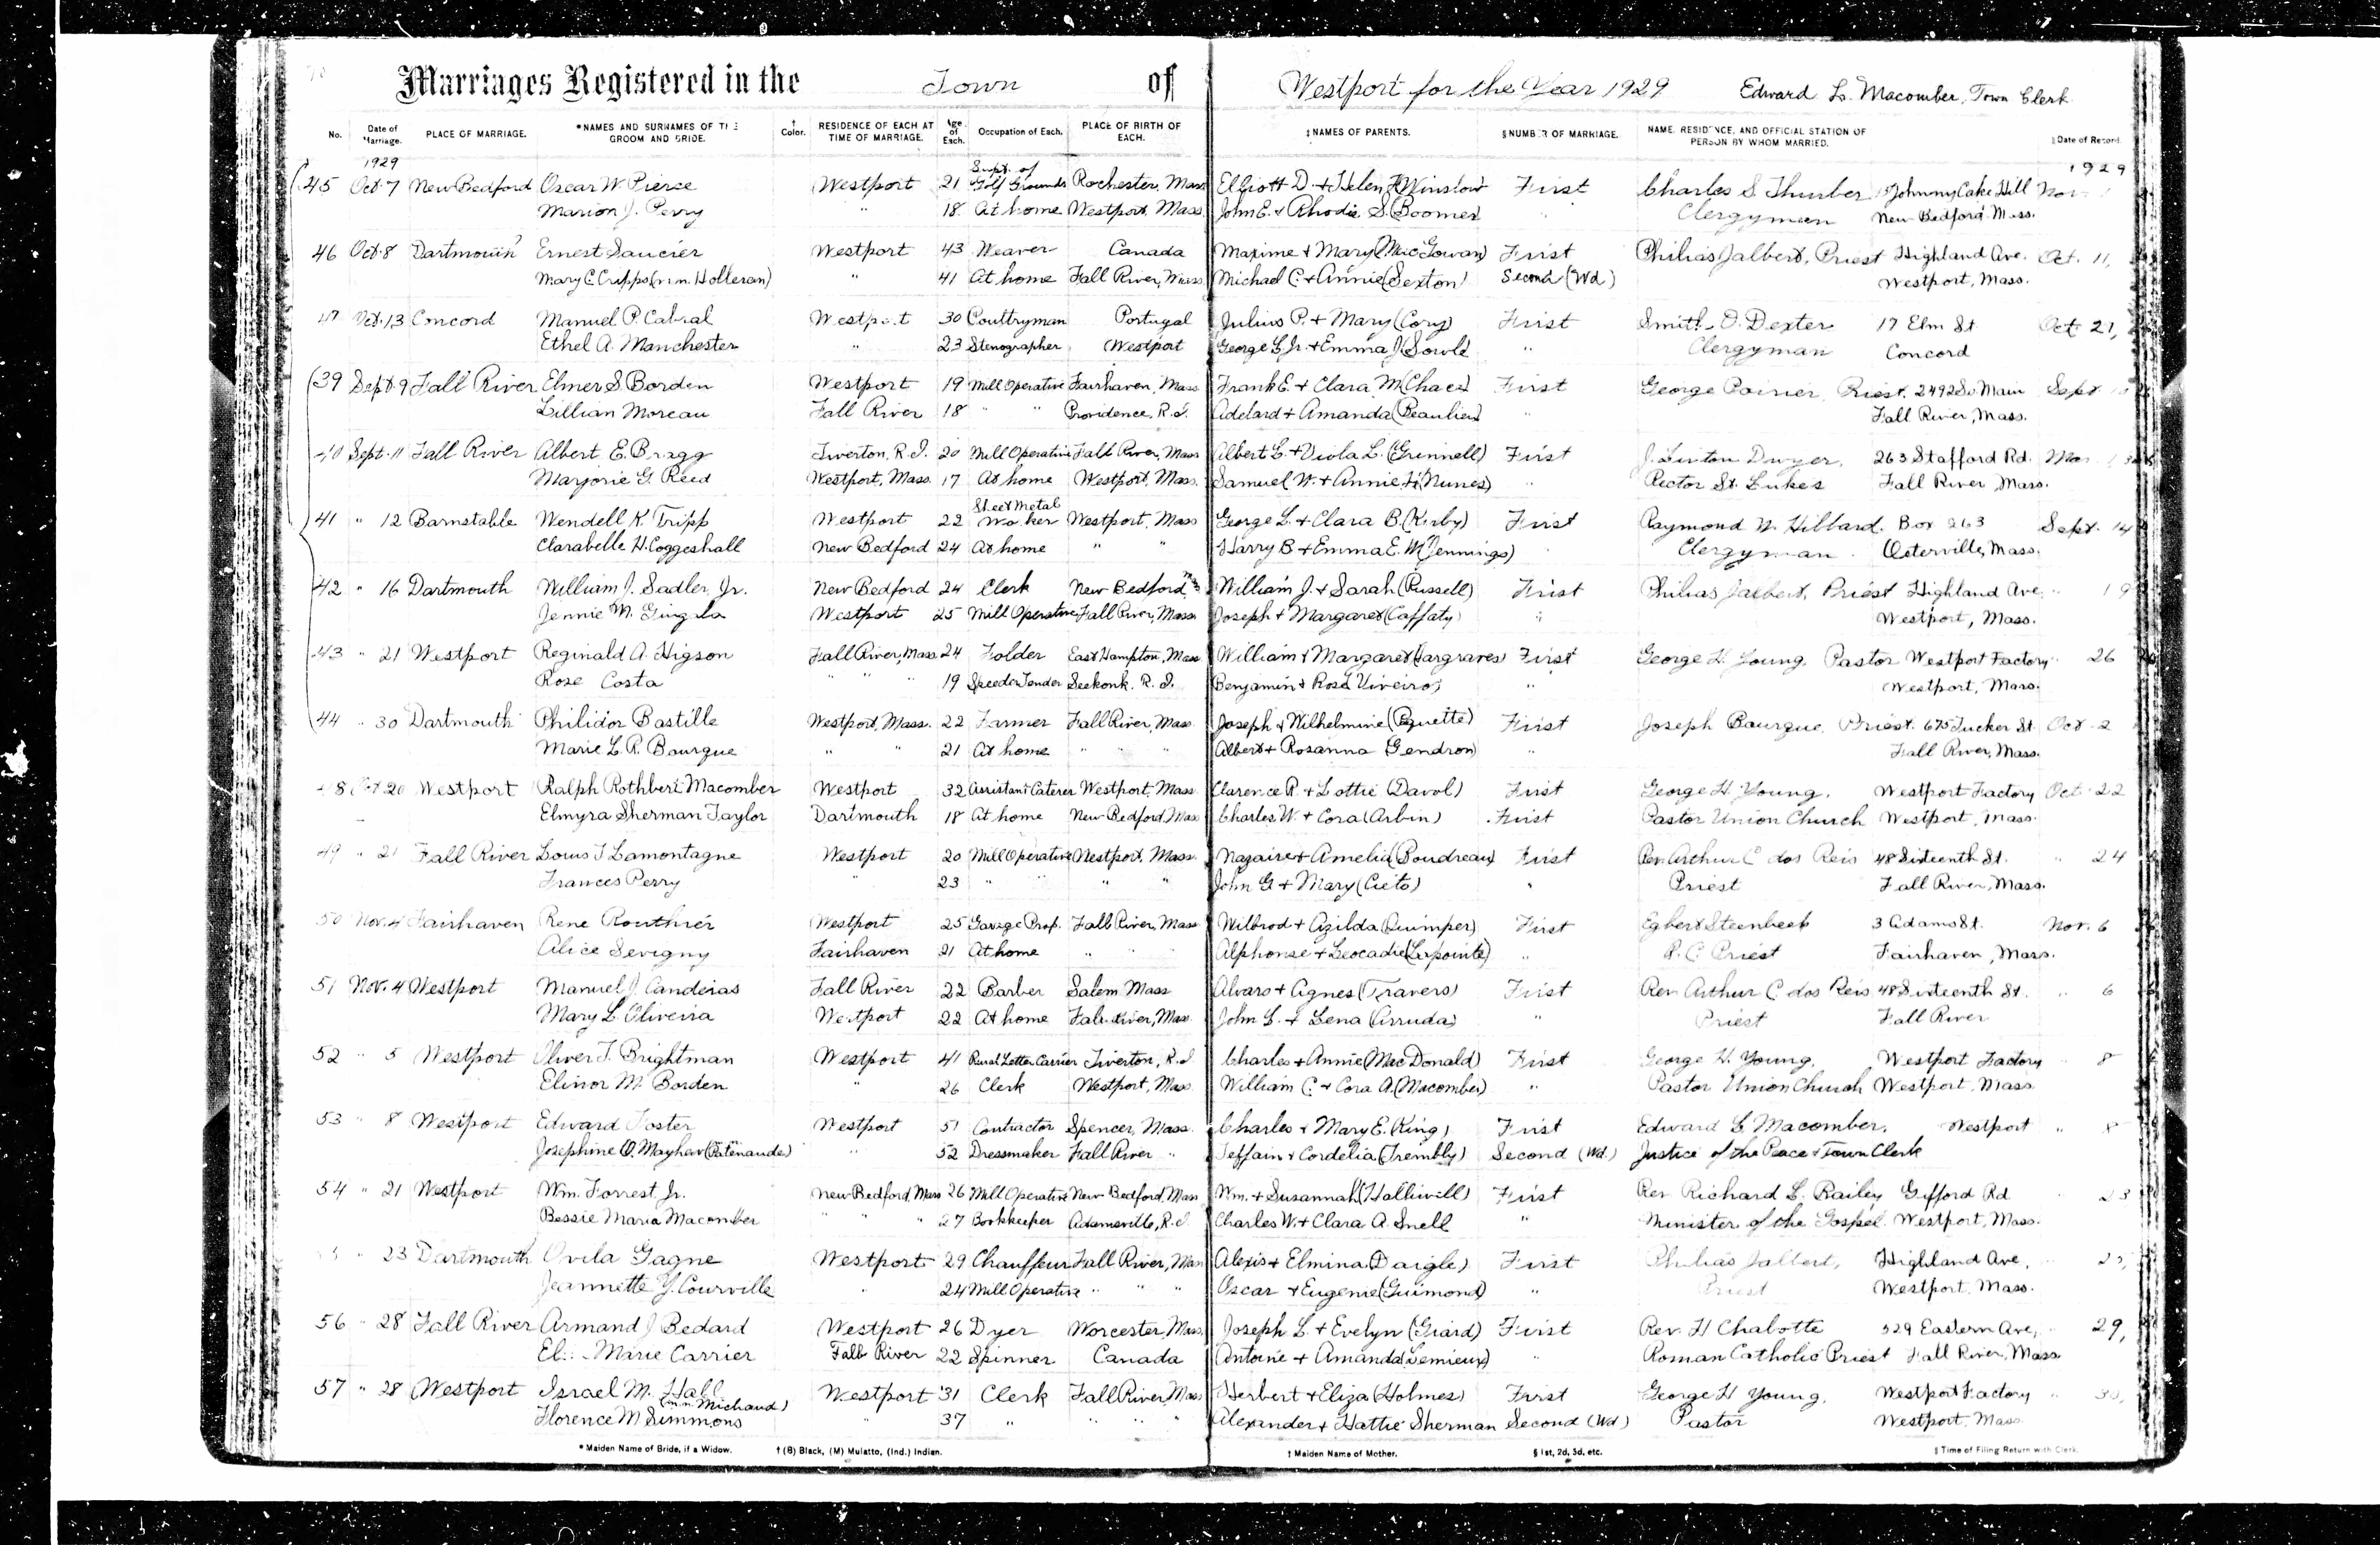 Marriages Registered in the Town of Westport for the Year 1929 Edward L. Macomber, Town Clerk
No. Date of Marriage. PLACE OF MARRIAGE. *NAMES AND SURNAMES OF THE GROOM AND BRIDE. † Color. RESIDENCE OF EACH AT TIME OF MARRIAGE. Age of Each. Occupation of Each. PLACE OF BIRTH OF EACH. ‡NAMES OF PARENTS. §NUMBER OF MARRIAGE. NAME, RESIDENCE, AND OFFICIAL STATION OF PERSON BY WHOM MARRIED. ‖Date of Record.
1929 1929
45 Oct. 7 New Bedford Oscar W. Pierce Westport 21 Supt. of Golf Grounds Rochester, Mass. Elliott D. + Helen (Winslow) First Charles S Thurber Johnny Cake Hill Nov.
Marion J. Perry " 18 At home Westport, Mass. John E. + Rhodie S. (Boomer) " Clergyman New Bedford Mass.
46 Oct. 8 Dartmouth Ernest Saucier Westport 43 Weaver Canada Maxime + Mary (MacGowan) First Philias Jalbert, Priest Highland Ave. Oct. 11,
Mary C. Cripps (m.n. Holleran) " 41 At home Fall River, Mass. Michael C. + Annie (Sexton) Second (Wd.) Westport, Mass.
47 Oct. 13 Concord Manuel P. Cabral Westport 30 Poultryman Portugal Julius P. + Mary (Cory) First Smith O. Dexter 17 Elm St. Oct. 21,
Ethel A. Manchester " 23 Stenographer Westport George L. Jr. + Emma J. (Sowle) " Clergyman Concord
39 Sept. 9 Fall River Elmer S. Borden Westport 19 Mill Operative Fairhaven, Mass. Frank E. + Clara M. (Chace) First George Poirier, Priest, 2492 So. Main Sept
Lillian Moreau Fall River 18 " " Providence, R.I. Adelard + Amanda (Beaulieu) " Fall River, Mass.
40 Sept. 11 Fall River Albert E. Bragg Tiverton, R.I. 20 Mill Operative Fall River, Mass. Albert L. + Viola L. (Grinnell) First J. Linton Dwyer, 263 Stafford Rd.
Marjorie G. Reed Westport, Mass. 17 At home Westport, Mass. Samuel W. + Annie H. (Nunes) " Rector St. Lukes Fall River, Mass.
41 " 12 Barnstable Wendell K. Tripp Westport 22 Sheet Metal Worker Westport, Mass George L. + Clara B. (Kirby) First Raymond W. Hibbard. Box 263 Sept. 14
Clarabelle H. Coggeshall New Bedford 24 At home " " Harry B + Emma E. M. (Jennings) Clergyman Osterville, Mass.
42 " 16 Dartmouth William J. Sadler, Jr. New Bedford 24 Clerk New Bedford, Mass William J. + Sarah (Russell) First Philias Jalbert, Priest Highland Ave. " 19
Jennie M. Westport 25 Mill Operative Fall River, Mass. Joseph + Margaret (Caffaty) " Westport, Mass.
43 " 21 Westport Reginald A. Higson Fall River, Mass. 24 Folder East Hampton, Mass William + Margaret (Hargraves) First George H. Young, Pastor Westport Factory " 26
Rose Costa " " 19 Speeder Tender Seekonk, R.I. Benjamin + Rosa (Viveiros) " Westport, Mass.
44 " 30 Dartmouth Philidor Bastille Westport, Mass. 22 Farmer Fall River, Mass. Joseph + Wilhelmine (Paquette) First Joseph Bourque, Priest. 675 Tucker St. Oct. 2
Marie L. R. Bourque " " 21 At home " " Albert + Rosanna (Gendron) " Fall River, Mass.
48 Oct 20 Westport Ralph Rothbert Macomber Westport 32 Assistant Caterer Westport, Mass. Clarence R. + Lottie (Davol) First George H Young, Westport Factory Oct. 22
Elmyra Sherman Taylor Dartmouth 18 At home New Bedford, Mass Charles W. + Cora (Arbin) First Pastor Union Church Westport, Mass.
49 " 21 Fall River Louis J Lamontagne Westport 20 Mill Operative Westport, Mass. Nazaire + Amelia (Boudreau) First Rev. Arthur C dos Reis 48 Sixteenth St. " 24
Frances Perry " 23 " " " " John G. + Mary (Cieto) " Priest Fall River, Mass.
50 Nov. 4 Fairhaven Rene Routhier Westport 25 Garage Prop. Fall River, Mass. Wilbrod + Azilda (Quimper) First Egbert Steenbeek 3 Adams St. Nov. 6
Alice Sevigny Fairhaven 21 At home " " Alphonse + Leocadie (Lapointe) " R. C. Priest Fairhaven, Mass.
51 Nov. 4 Westport Manuel J. Candeias Fall River 22 Barber Salem Mass Alvaro + Agnes (Travers) First Rev Arthur C. dos Reis 48 Sixteenth St. " 6
Mary L. Oliveira Westport 22 At home Fall River, Mass. John L. + Lena (Arruda) " Priest Fall River
52 " 5 Westport Oliver T. Brightman Westport 41 Rural Letter Carrier Tiverton, R.I. Charles + Annie (MacDonald) First George H. Young, Westport Factory " 8
Elinor M. Borden " 26 Clerk Westport, Mass. William C. + Cora A. (Macomber) " Pastor Union Church Westport, Mass
53 " 8 Westport Edward Foster Westport 51 Contractor Spencer, Mass. Charles + Mary E. (King) First Edward L Macomber, Westport " 8
Josephine O. Mayhew (Patenaude) " 52 Dressmaker Fall River " + Cordelia (Trembly) Second (Wd.) Justice of the Peace + Town Clerk
54 " 21 Westport Wm. Forrest, Jr. New Bedford, Mass 26 Mill Operative New Bedford, Mass Wm. + Susannah (Halliwill) First Rev Richard L. Bailey Gifford Rd 23
Bessie Maria Macomber " " 27 Bookkeeper Adamsville, R.I. Charles W. + Clara A. Snell " Minister of the Gospel. Westport, Mass.
" 23 Dartmouth Ovila Gagne Westport 29 Chauffeur Fall River, Mass Alexis + Elmina (Daigle) First Philias Jalbert, Highland Ave,
Jeannette Y. Courville " 24 Mill Operative " " Oscar + Eugenie (Guimond) " Priest Westport, Mass.
56 " 28 Fall River Armand J Bedard Westport 26 Dyer Worcester, Mass. Joseph L. + Evelyn (Giard) First Rev. H Chabotte 529 Eastern Ave, " 29,
Marie Carrier Fall River 22 Spinner Canada Antoine + Amanda (Lemieux) " Roman Catholic Priest Fall River, Mass
57 " 28 Westport Israel M. Hall Westport 31 Clerk Fall River, Mass Herbert + Eliza (Holmes) First George H Young, Westport Factory " 30,
(m.n. Michaud)
Florence M Simmons " 37 " " " Alexander + Hattie Sherman Second (Wd) Pastor Westport, Mass
* Maiden Name of Bride, if a Widow. † (B) Black, (M) Mulatto, (Ind.) Indian. ‡ Maiden Name of Mother. § 1st, 2d, 3d, etc. ‖ Time of Filing Return with Clerk.